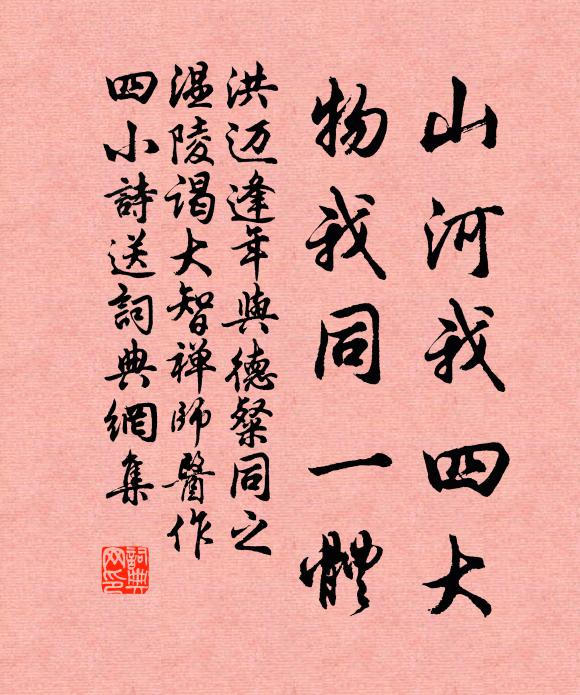 山河我四大
物我同一體
洪迈逢年與德粲同之
温陵谒大智禅师醫作
四小詩送詞典網集
詞典网印